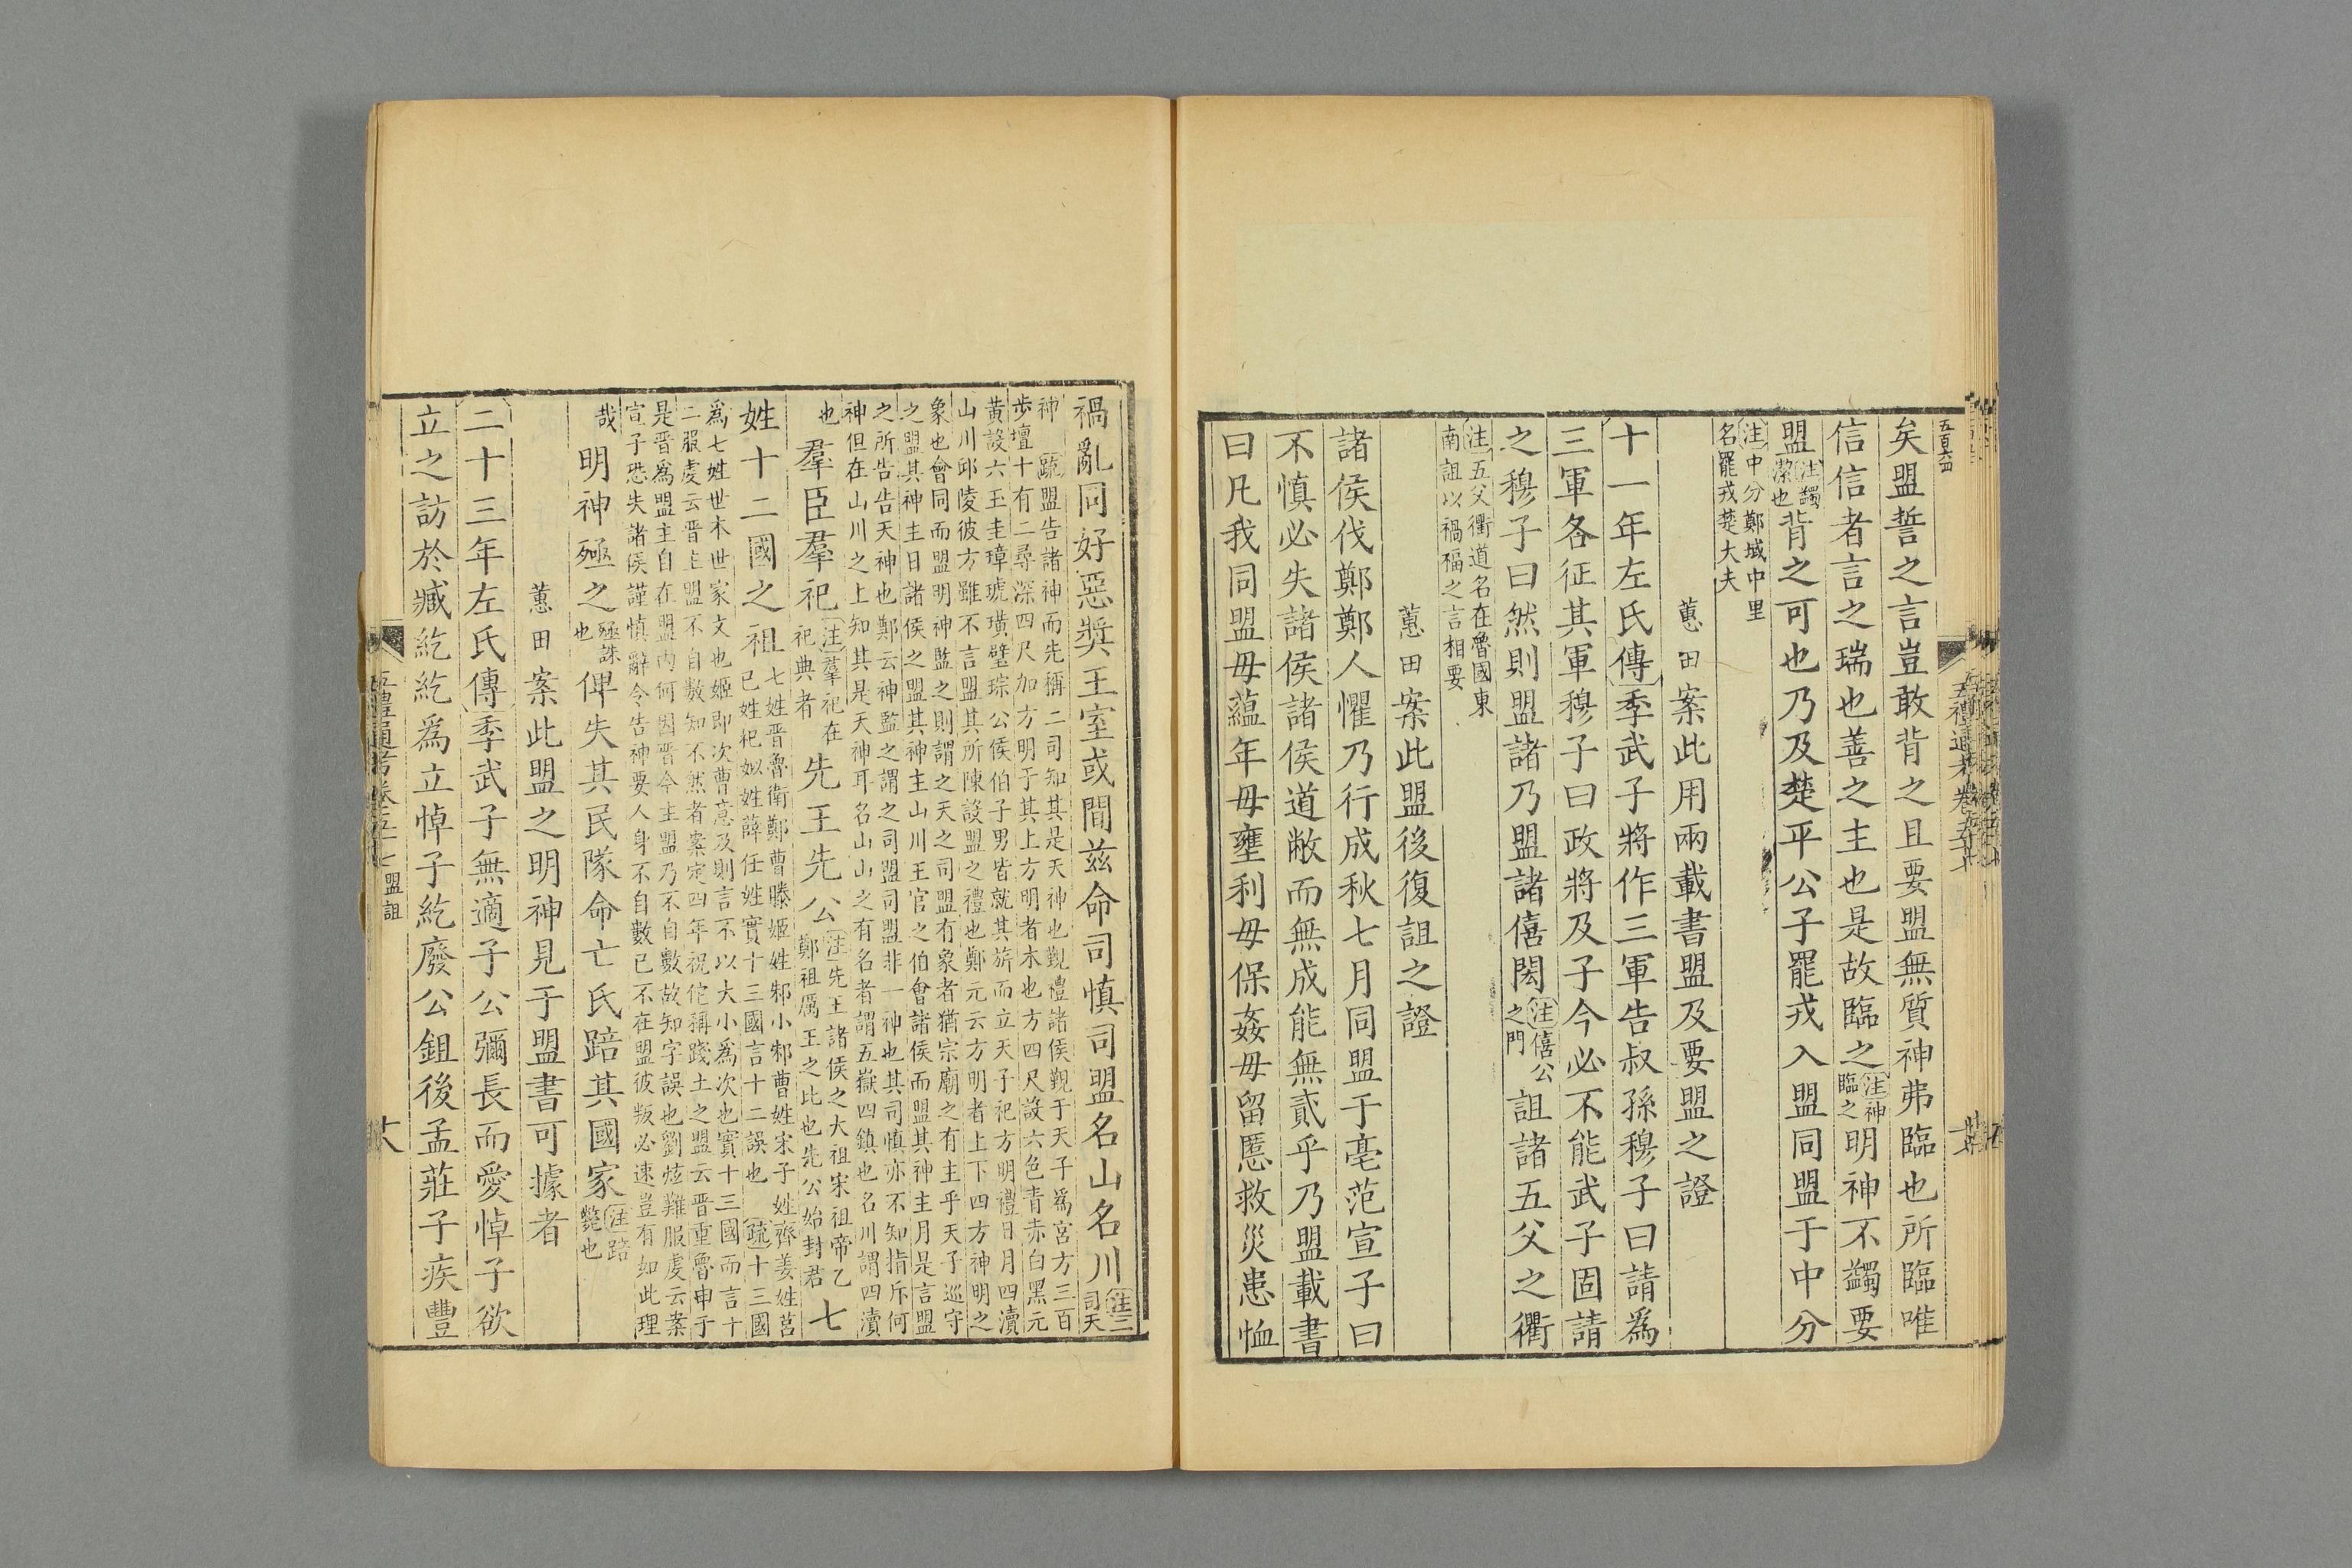 五百六四
矣盟誓之言豈敢背之且要盟無質神弗臨也所臨唯
信信者言之瑞也善之主也是故臨之注神臨之明神不蠲要
盟注蠲潔也背之可也乃及楚平公子罷戎入盟同盟于中分
注中分鄭城中里
名罷戎楚大夫
蕙田案此用兩載書盟及要盟之證
十一年左氏傳季武子將作三軍告叔孫穆子曰請爲
三軍各征其軍穆子曰政將及子今必不能武子固請
之穆子曰然則盟諸乃盟諸僖閎注僖公之門詛諸五父之衢
注五父衢道名在魯國東
南詛以禍福之言相要
蕙田案此盟後復詛之證
諸侯伐鄭鄭人懼乃行成秋七月同盟于亳范宣子曰
不慎必失諸侯諸侯道敝而無成能無貳乎乃盟載書
曰凡我同盟毋蘊年毋壅利毋保姦毋留慝救災患恤
禍亂同好惡奬王室或間茲命司慎司盟名山名川注二司天
神疏盟告諸神而先稱二司知其是天神也覲禮諸侯覲于天子爲宮方三百
步壇十有二尋深四尺加方明于其上方明者木也方四尺設六色青赤白黑元
黄設六玉圭璋琥璜璧琮公侯伯子男皆就其旂而立天子祀方明禮日月四瀆
山川邱陵彼方雖不言盟其所陳設盟之禮也鄭元云方明者上下四方神明之
象也會同而盟明神監之則謂之天之司盟有象者猶宗廟之有主乎天子巡守
之盟其神主日諸侯之盟其神主山川王官之伯會諸侯而盟其神主月是言盟
之所告告天神也鄭云神監之謂之司盟司盟非一神也其司慎亦不知指斥何
神但在山川之上知其是天神耳名山山之有名者謂五嶽四鎮也名川謂四瀆
也羣臣羣祀注羣祀在祀典者先王先公注先王諸侯之大祖宋祖帝乙鄭祖厲王之比也先公始封君七
姓十二國之祖七姓晉魯衛鄭曹滕姬姓邾小邾曹姓宋子姓齊姜姓莒己姓杞姒姓薛任姓實十三國言十二誤也疏十三國
爲七姓世本世家文也姬即次曹意及則言不以大小爲次也實十三國而言十
二服虔云晉主盟不自數知不然者案定四年祝佗稱踐土之盟云晉重魯申于
是晉爲盟主自在盟內何因晉今主盟乃不自數故知字誤也劉炫難服虔云案
宣子恐失諸侯謹慎辭令告神要人身不自數己不在盟彼叛必速豈有如此理
哉明神殛之殛誅也俾失其民隊命亡氏踣其國家注踣斃也
蕙田案此盟之明神見于盟書可據者
二十三年左氏傳季武子無適子公彌長而愛悼子欲
立之訪於臧紇紇爲立悼子紇廢公鉏後孟莊子疾豐
五禮通考卷五十七 盟詛
六